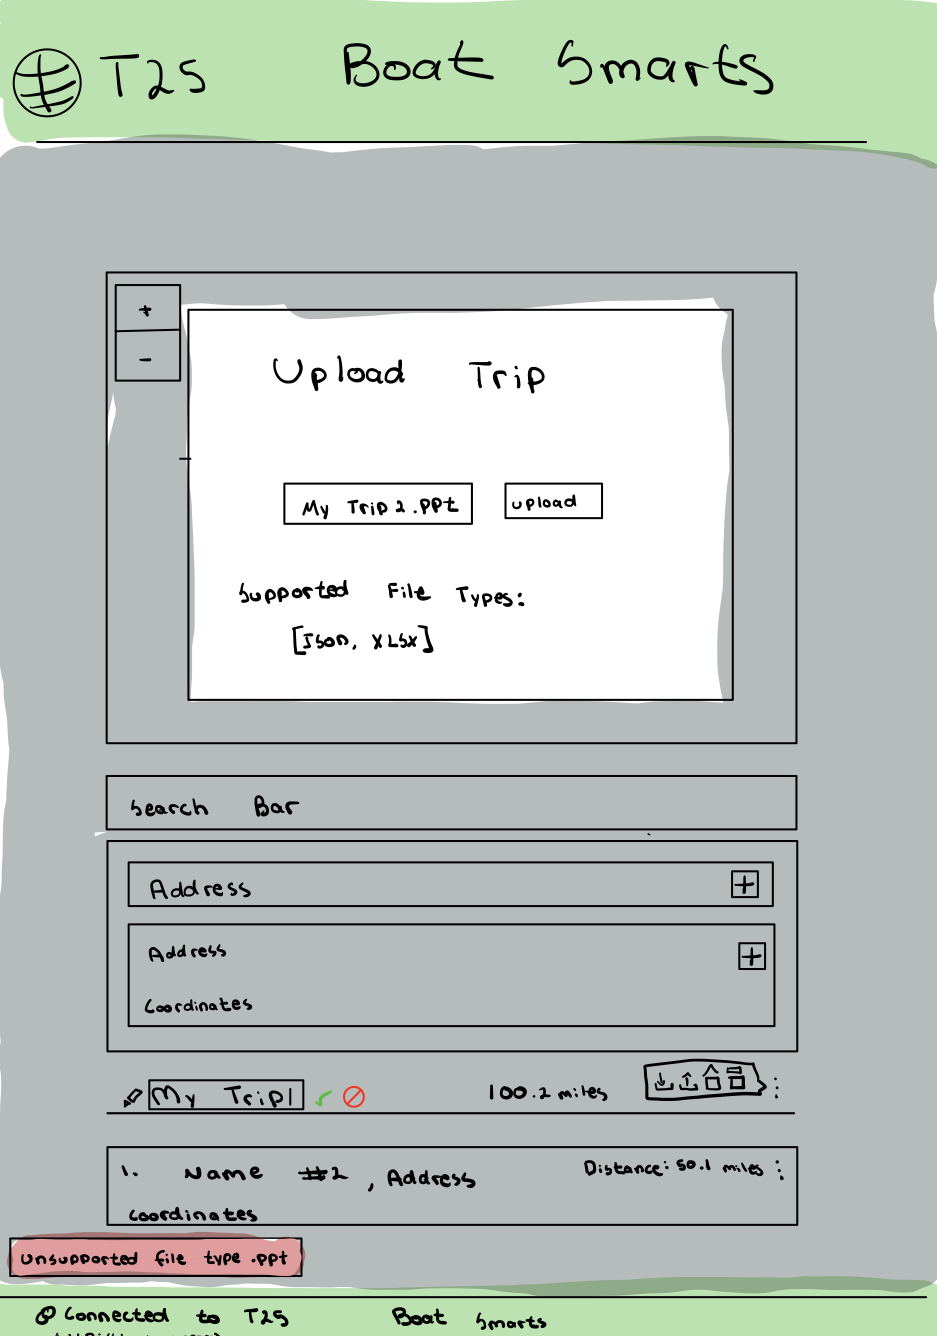 T25 Boat Smarts
+
-
Upload Trip
My Trip 2.ppt upload
Supported File Types:
[Json, XLSX]
Search Bar
Address +
Address +
Coordinates
My Trip 100.2 miles
1. Name #2, Address Distance: 50.1 miles
Coordinates
Unsupported file type .ppt
Connected to T25 Boat Smarts